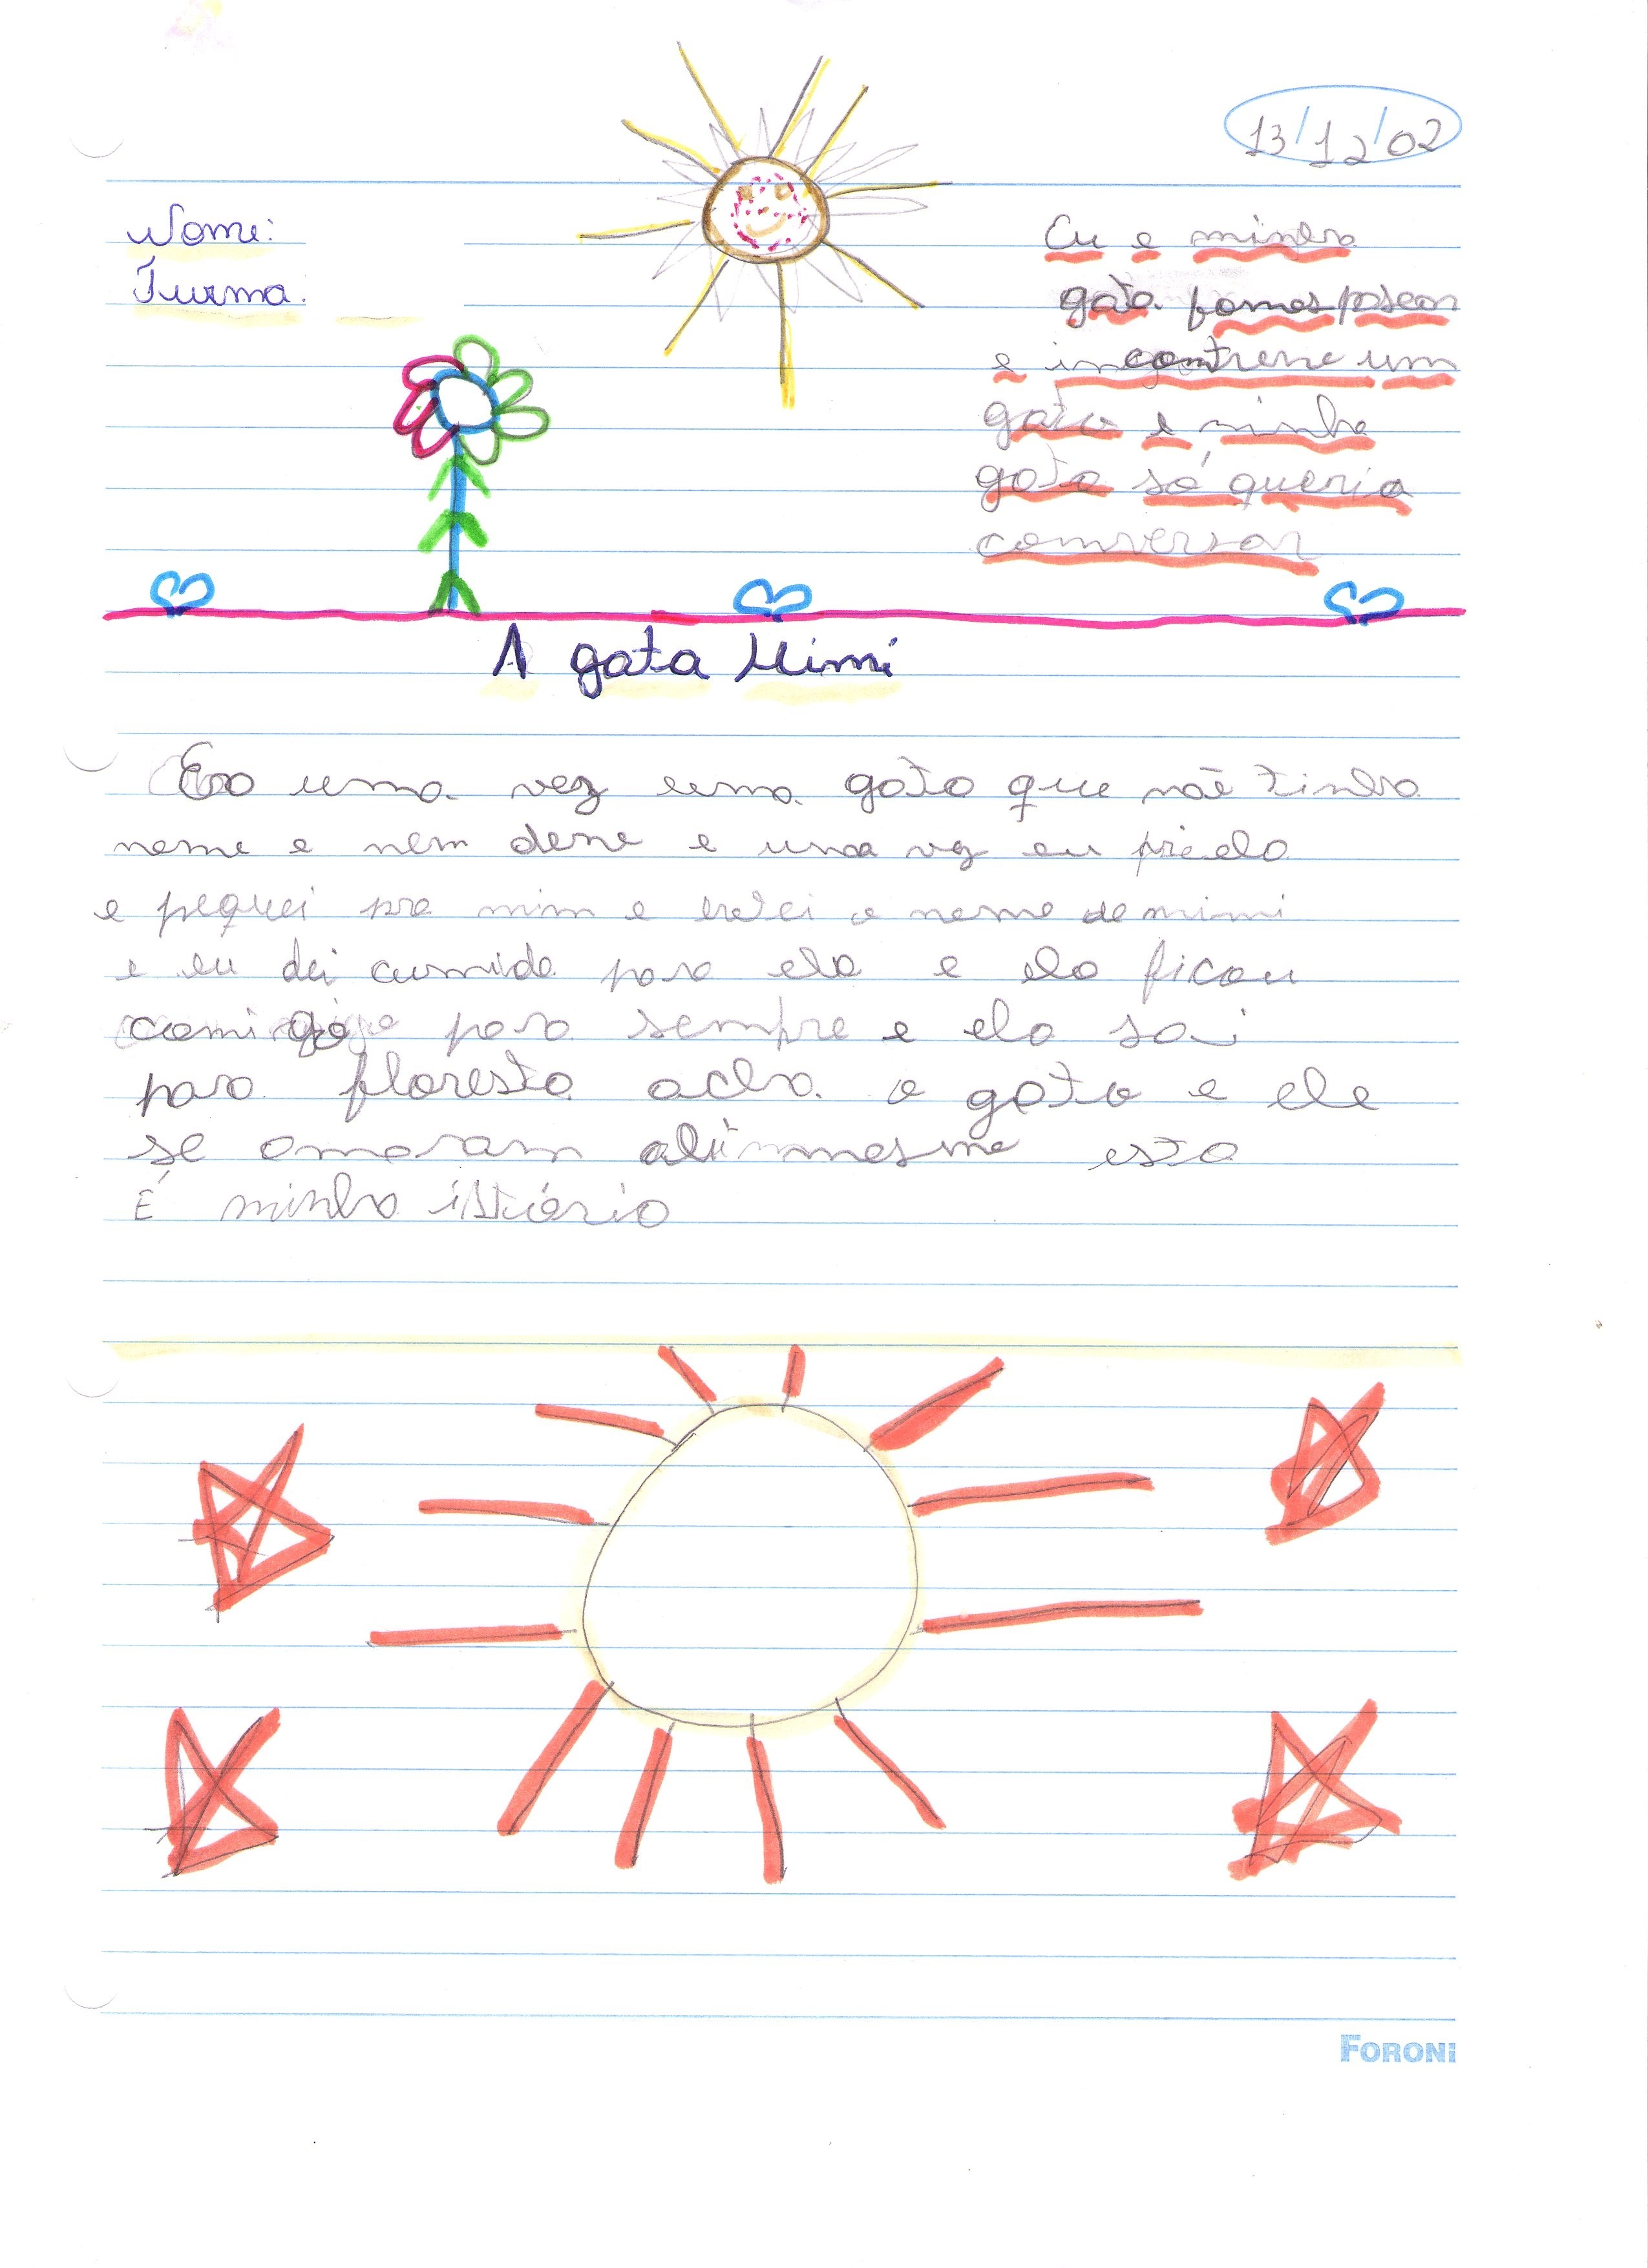 13/12/02
Nome:
Turma.
Eu e minha
gata fomos pasear
e incontrene um
gato e minha
gata só queria
comversar
A gata Mimi
Era uma vez uma gata que não tinha
nome e nem dono e uma vez eu
e peguei pra mim e botei o nome de mimi
e eu dei cumida para ela e ela ficou
comigo para sempre e ela sai
para floresta acha o gato e ele
se amaram esta
É minha istiória
FORONI